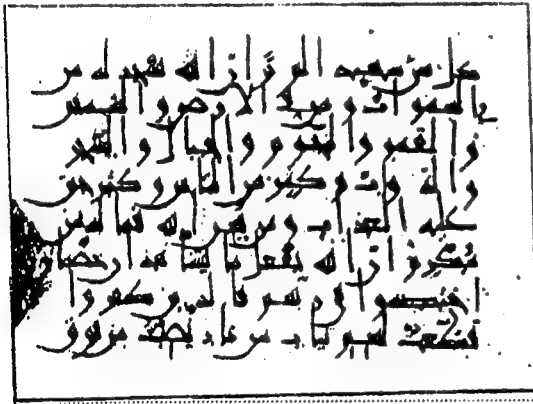 كل شي شهيد الم تر ان الله يسجد له من
في السموات ومن في الارض والشمس
والقمر والنجوم والجبال والشجر
والدواب وكثير من الناس وكثير حق
عليه العذاب ومن يهن الله فما له من
مكرم ان الله يفعل ما يشا هذان خصمان
اختصموا في ربهم فالذين كفروا
قطعت لهم ثياب من نار يصب من فوق